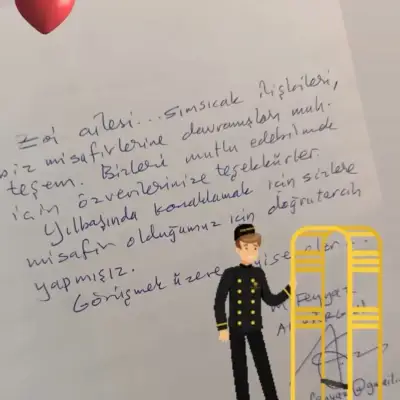 Zoi ailesi... sımsıcak ilişkileri,
biz misafirlerine davranışları muh-
teşem. Bizleri mutlu edebilmek
için özverilerinize teşekkürler.
Yılbaşında konaklamak için sizlere
misafir olduğumuz için doğru tercih
yapmışız.
Görüşmek üzere
M. Feyyaz